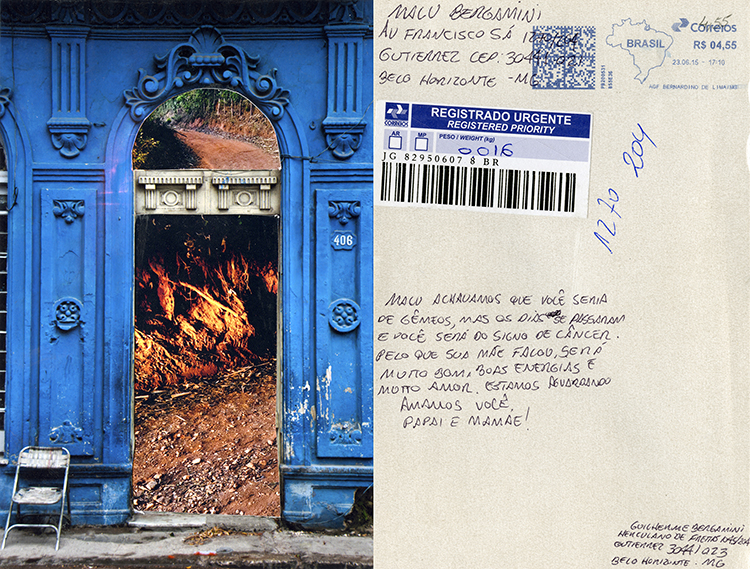 406
MALU BERGAMINI
AV FRANCISCO SÁ
GUTIERREZ CEP: 30441 021
BELO HORIZONTE - MG
BRASIL
4.55
Correios
R$ 04,55
23.06.15 - 17:10
AGF BERNARDINO DE LIMA/MG
CORREIOS
REGISTRADO URGENTE
REGISTERED PRIORITY
AR
MP
PESO / WEIGHT (kg)
0016
JG 82950607 8 BR
1270 204
MALU ACHAVAMOS QUE VOCÊ SERIA
DE GÊMEOS, MAS OS DIAS SE PASSARAM
E VOCÊ SERÁ DO SIGNO DE CÂNCER.
PELO QUE SUA MÃE FALOU, SERÁ
MUITO BOM, BOAS ENERGIAS E
MUITO AMOR. ESTAMOS AGUARDANDO
AMAMOS VOCÊ.
PAPAI E MAMÃE!
GUILHERME BERGAMINI
HERCULANO DE FREITAS
GUTIERREZ 30441 023
BELO HORIZONTE - MG